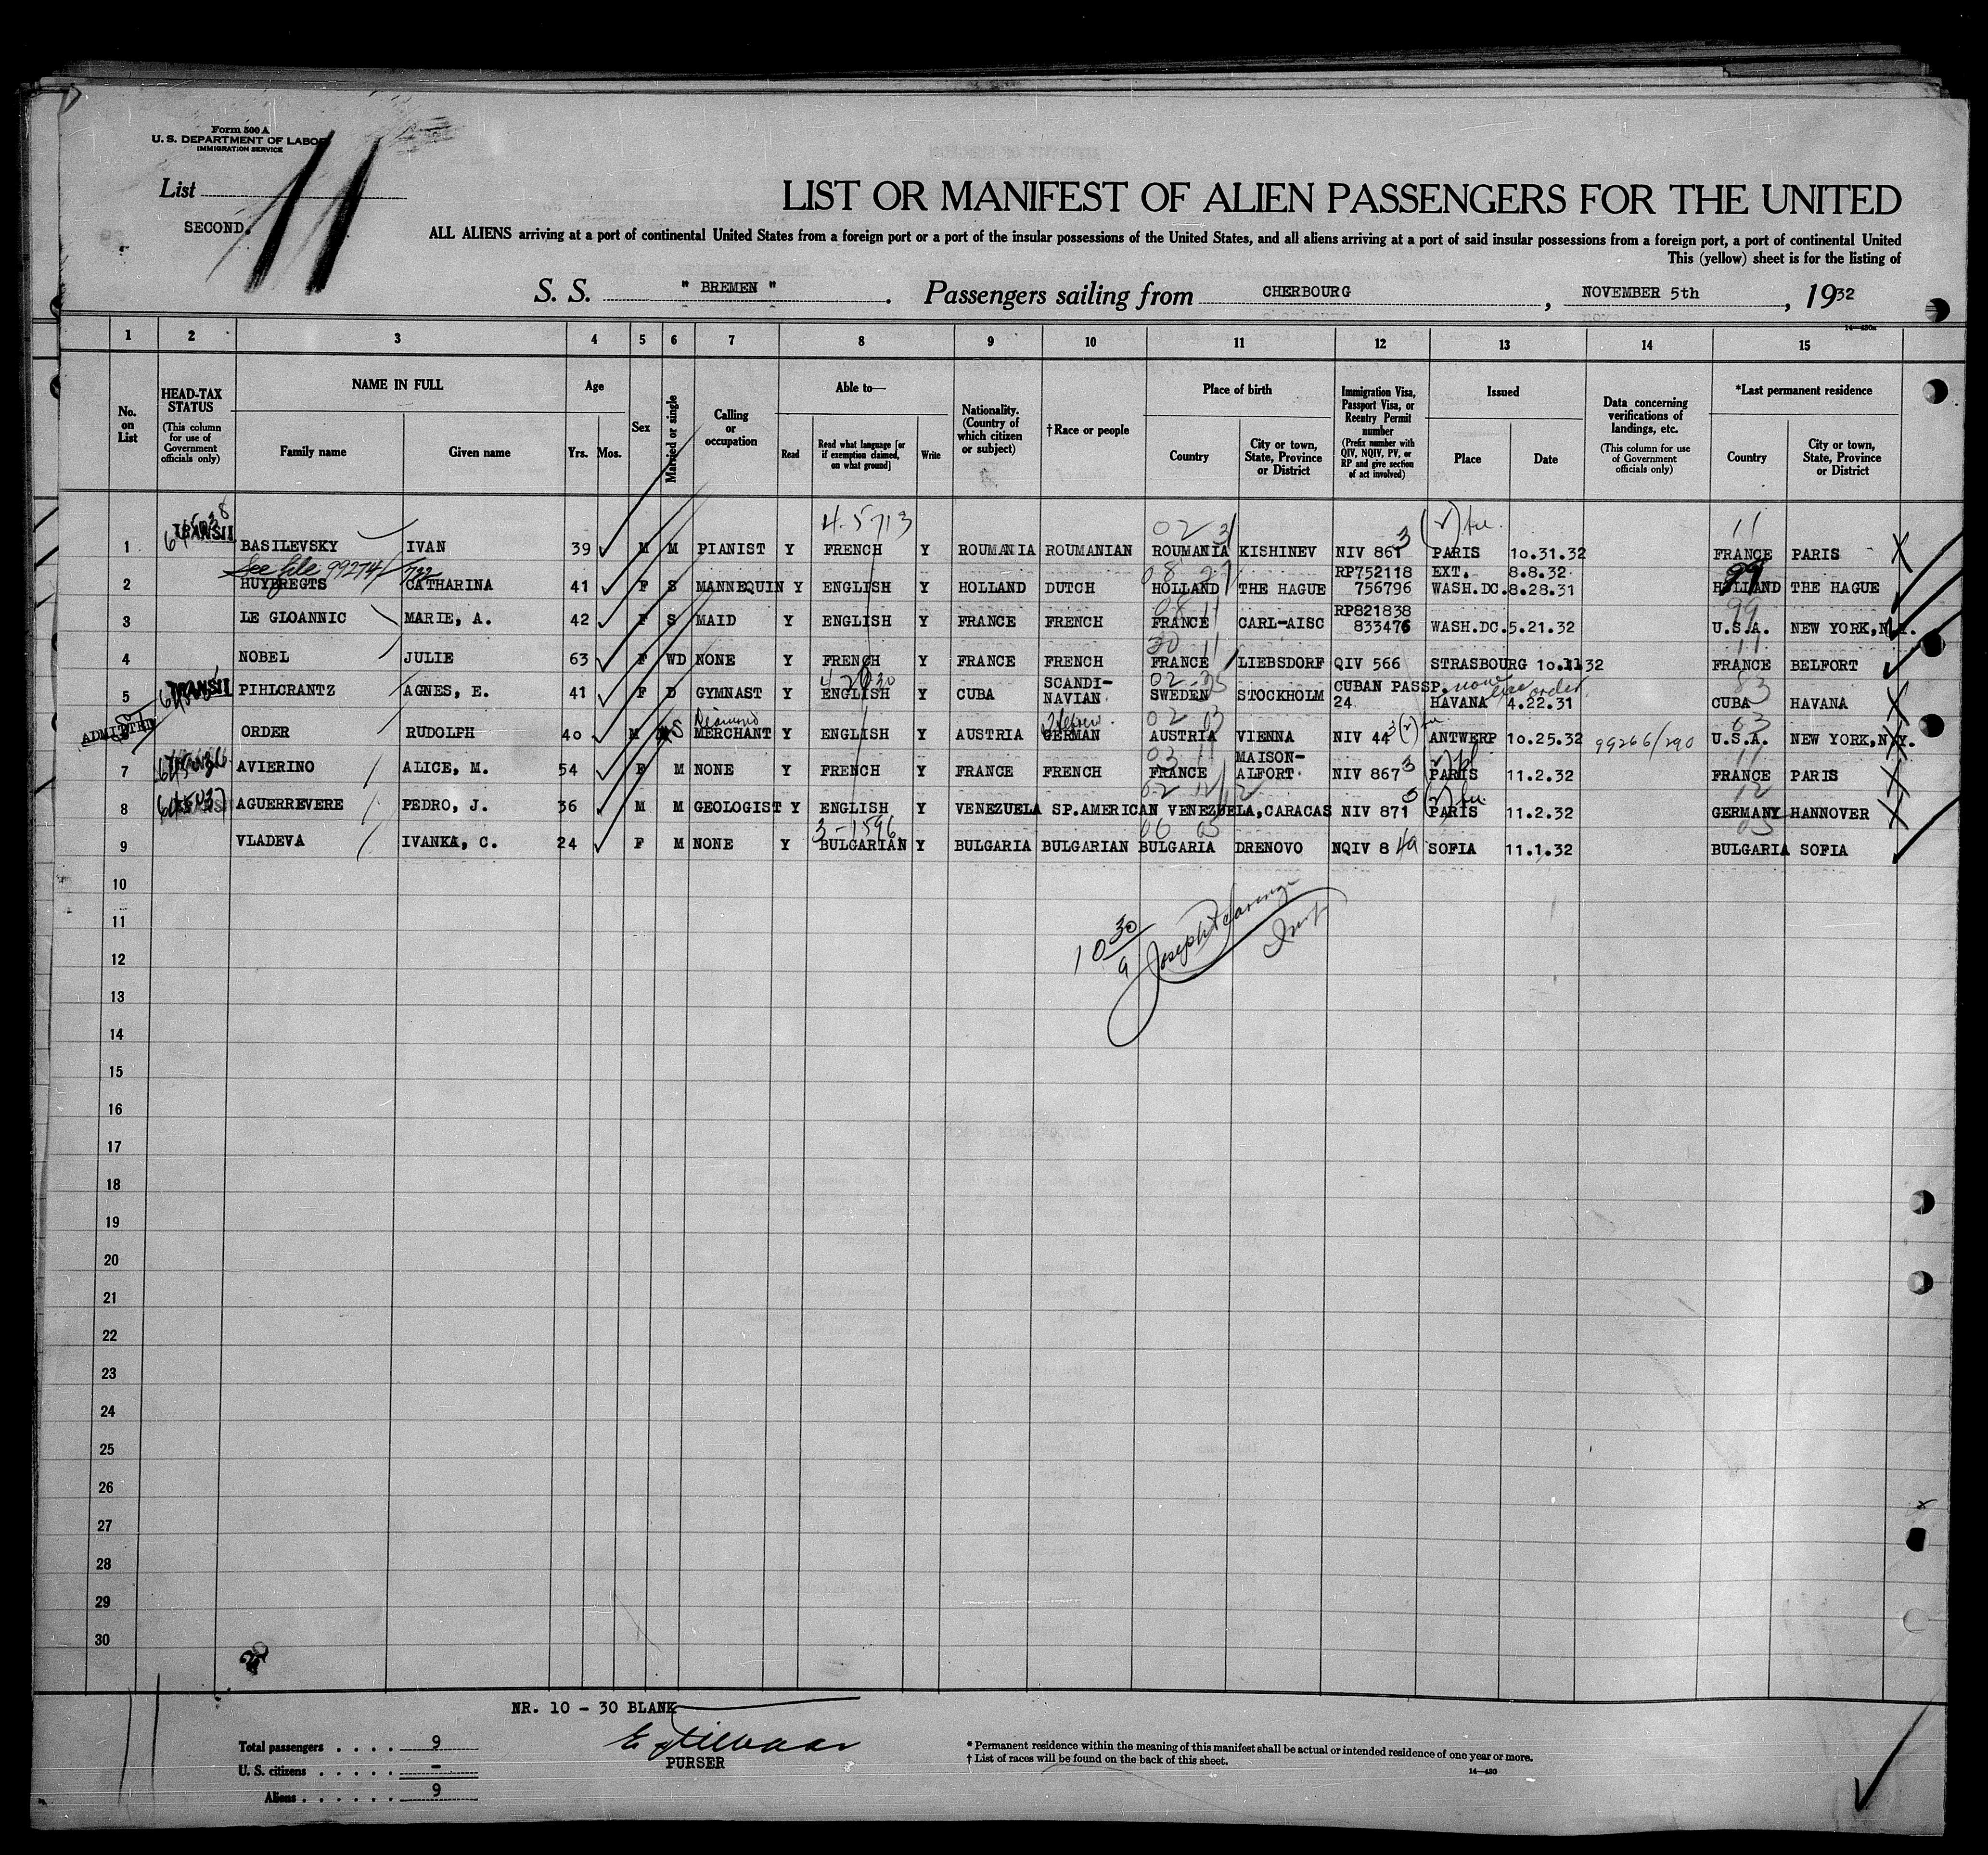 Form 500 A
U. S. DEPARTMENT OF LABOR
IMMIGRATION SERVICE
List
11
SECOND.
LIST OR MANIFEST OF ALIEN PASSENGERS FOR THE UNITED
ALL ALIENS arriving at a port of continental United States from a foreign port or a port of the insular possessions of the United States, and all aliens arriving at a port of said insular possessions from a foreign port, a port of continental United
This (yellow) sheet is for the listing of
S. S. " BREMEN " . Passengers sailing from CHERBOURG , NOVEMBER 5th , 1932
14—430a
1 2 3 4 5 6 7 8 9 10 11 12 13 14 15
No. on List
HEAD-TAX STATUS
(This column for use of Government officials only)
NAME IN FULL
Family name Given name
Age
Yrs. Mos.
Sex
Married or single
Calling or occupation
Able to—
Read
Read what language [or if exemption claimed, on what ground]
Write
Nationality. (Country of which citizen or subject)
†Race or people
Place of birth
Country
City or town, State, Province or District
Immigration Visa, Passport Visa, or Reentry Permit number
(Prefix number with QIV, NQIV, PV, or RP and give section of act involved)
Issued
Place Date
Data concerning verifications of landings, etc.
(This column for use of Government officials only)
*Last permanent residence
Country
City or town, State, Province or District
TRANSIT 4-5713 02 31 11
1 BASILEVSKY IVAN 39 M M PIANIST Y FRENCH Y ROUMANIA ROUMANIAN ROUMANIA KISHINEV NIV 861 3 PARIS 10.31.32 FRANCE PARIS
See file 99274/732 RP752118 EXT. 8.8.32 99
2 HUYBREGTS CATHARINA 41 F S MANNEQUIN Y ENGLISH Y HOLLAND DUTCH HOLLAND THE HAGUE 756796 WASH.DC. 8.28.31 HOLLAND THE HAGUE
08 11 RP821838 99
3 LE GLOANNIC MARIE, A. 42 F S MAID Y ENGLISH Y FRANCE FRENCH FRANCE CARL-AISC 833476 WASH.DC. 5.21.32 U.S.A. NEW YORK,N.Y.
30 11 11
4 NOBEL JULIE 63 F WD NONE Y FRENCH Y FRANCE FRENCH FRANCE LIEBSDORF QIV 566 STRASBOURG 10.11.32 FRANCE BELFORT
TRANSIT SCANDI- 02 CUBAN PASSP. none 83
5 PIHLCRANTZ AGNES, E. 41 F D GYMNAST Y ENGLISH Y CUBA NAVIAN SWEDEN STOCKHOLM 24 HAVANA 4.22.31 CUBA HAVANA
ADMITTED Diamond Hebrew 02 03 63
ORDER RUDOLPH 40 M S MERCHANT Y ENGLISH Y AUSTRIA GERMAN AUSTRIA VIENNA NIV 44 3 ANTWERP 10.25.32 99266/290 U.S.A. NEW YORK,N.Y.
03 11 MAISON- 11
7 AVIERINO ALICE, M. 54 F M NONE Y FRENCH Y FRANCE FRENCH FRANCE ALFORT NIV 867 3 PARIS 11.2.32 FRANCE PARIS
8 AGUERREVERE PEDRO, J. 36 M M GEOLOGIST Y ENGLISH Y VENEZUELA SP.AMERICAN VENEZUELA,CARACAS NIV 871 3 PARIS 11.2.32 12 GERMANY HANNOVER
3-1596 06 05 05
9 VLADEVA IVANKA, C. 24 F M NONE Y BULGARIAN Y BULGARIA BULGARIAN BULGARIA DRENOVO NQIV 8 4a SOFIA 11.1.32 BULGARIA SOFIA
10
11
12
13
14
15
16
17
18
19
20
21
22
23
24
25
26
27
28
29
30
10 30/9
NR. 10 - 30 BLANK
Total passengers . . . . 9
U. S. citizens . . . . . -
Aliens . . . . . . 9
PURSER
* Permanent residence within the meaning of this manifest shall be actual or intended residence of one year or more.
† List of races will be found on the back of this sheet.
14—430